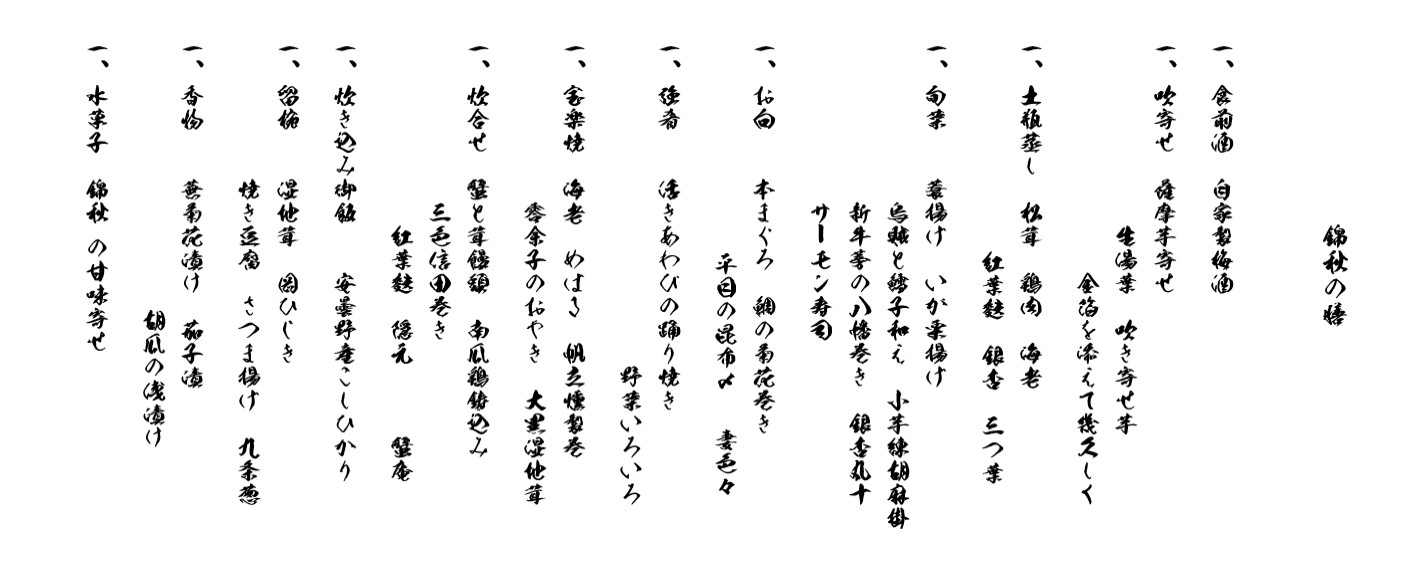 錦秋の膳
一、食前酒　自家製梅酒
一、吹寄せ　薩摩芋寄せ
生湯葉　吹き寄せ芋
金箔を添えて幾久しく
一、土瓶蒸し　松茸　鶏肉　海老
紅葉麩　銀杏　三つ葉
一、旬菜　蓑揚げ　いが栗揚げ
烏賊と鱈子和え　小芋練胡麻掛
新牛蒡の八幡巻き　銀杏丸十
サーモン寿司
一、お向　本まぐろ　鯛の菊花巻き
平目の昆布〆　妻色々
一、強肴　活きあわびの踊り焼き
野菜いろいろ
一、宝楽焼　海老　めはる　帆立燻製巻
零余子のおやき　大黒湿地茸
一、炊合せ　蟹と茸饅頭　南瓜鶏射込み
三色信田巻き
紅葉麩　隠元　蟹庵
一、炊き込み御飯　安曇野産こしひかり
一、留椀　湿地茸　岡ひじき
焼き豆腐　さつま揚げ　九条葱
一、香物　蕪菊花漬け　茄子漬
胡瓜の浅漬け
一、水菓子　錦秋の甘味寄せ